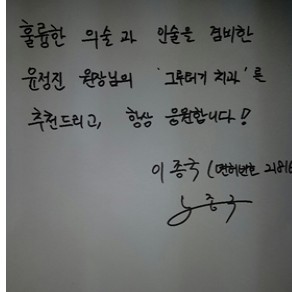 훌륭한 의술과 인술을 겸비한
윤정진 원장님의 '그루터기 치과'를
추천드리고, 항상 응원합니다!
이종국 (면허번호 21816
이종국